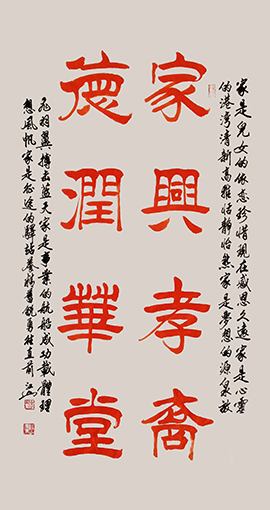 家是兒女的依恋珍惜現在感恩久遠家是心靈
的港灣清新高雅恬静怡然家是夢想的源泉放
家興孝裔
德潤華堂
飛羽翼搏击蓝天家是事業的航船成功載體理
想風帆家是征途的驛站養精蓄銳勇往直前